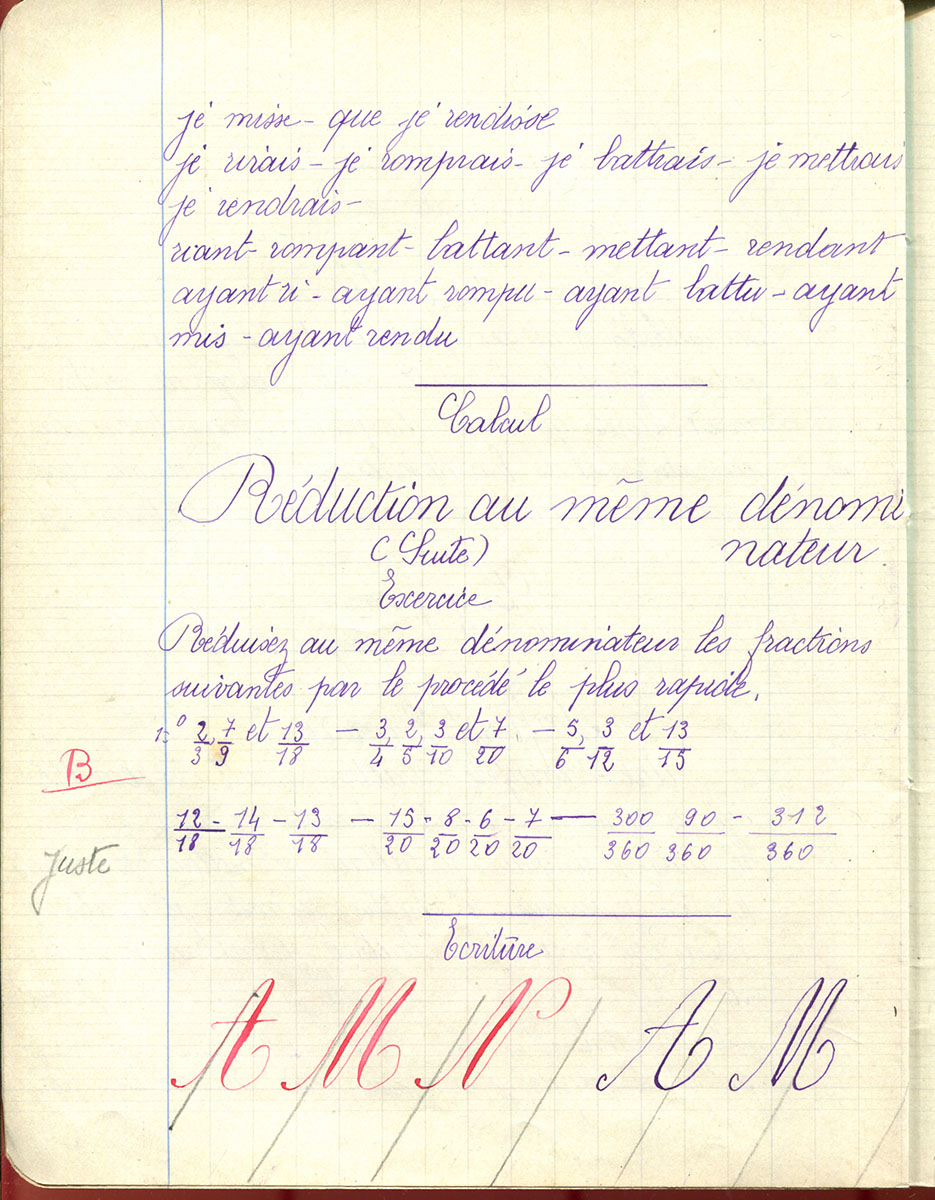 je misse - que je rendisse
je rirais - je romprais - je battrais - je mettrais
je rendrais -
riant - rompant - battant - mettant - rendant
ayant ri - ayant rompu - ayant battu - ayant
mis - ayant rendu
Calcul
Réduction au même dénomi
(Suite) nateur
Exercice
Réduisez au même dénominateur les fractions
suivantes par le procédé le plus rapide.
1º 2/3, 7/9 et 13/18 — 3/4, 2/5, 3/10 et 7/20 — 5/6, 3/12 et 13/15
B
12/18 - 14/18 - 13/18 — 15/20 - 8/20 - 6/20 - 7/20 — 300/360 90/360 - 312/360
Juste
Ecriture
A M N A M